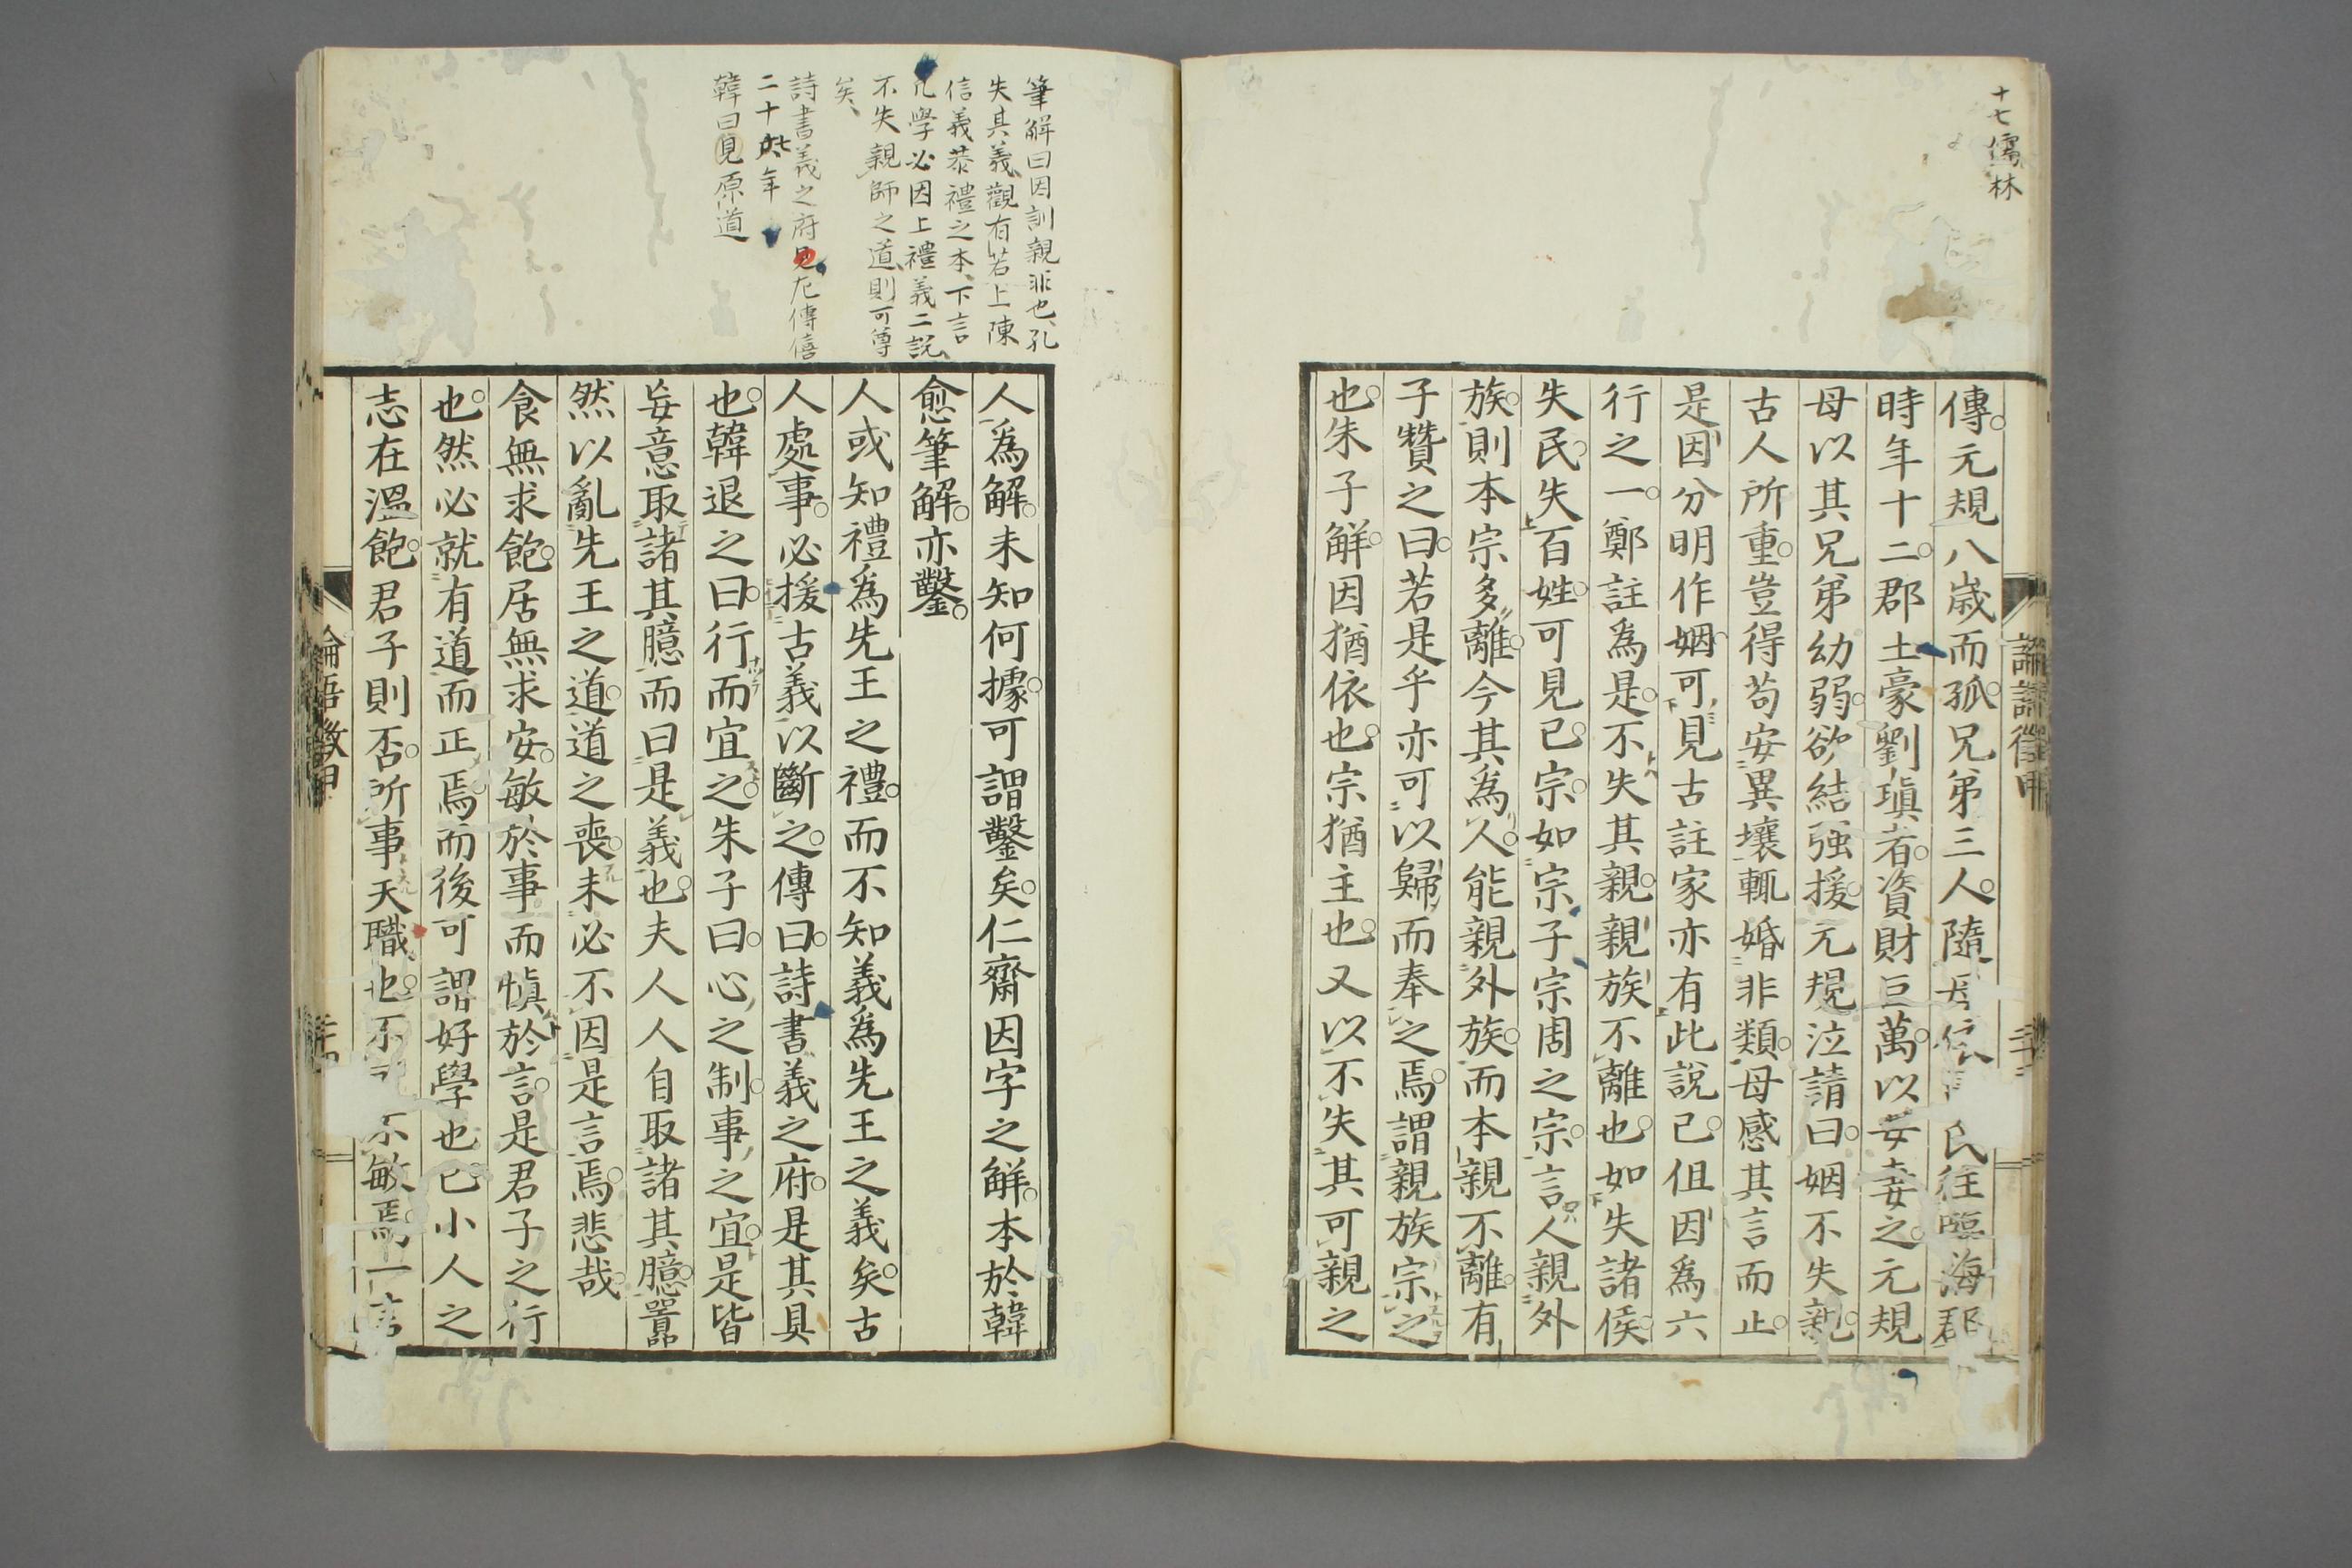 十七儒林
傳元規八歲而孤兄弟三人隨母依 氏往臨海郡
時年十二郡土豪劉瑱者資財巨萬以女妻之元規
母以其兄弟幼弱欲結强援元規泣請曰姻不失親
古人所重豈得苟安異壤輒婚非類母感其言而止
是因分明作姻可見古註家亦有此說已但因為六
行之一鄭註為是不失其親親族不離也如失諸侯
失民失百姓可見已宗如宗子宗周之宗言人親外
族則本宗多離今其為人能親外族而本親不離有
子贊之曰若是乎亦可以歸而奉之焉謂親族宗之
也朱子解因猶依也宗猶主也又以不失其可親之
論語徵甲
筆解曰因訓親非也孔
失其義觀有若上陳
信義恭禮之本下言
凡學必因上禮義二說
不失親師之道則可尊
矣
詩書義之府見左傳僖
二十七年
韓曰見原道
人為解未知何據可謂鑿矣仁齋因字之解本於韓
愈筆解亦鑿
人或知禮為先王之禮而不知義為先王之義矣古
人處事必援古義以斷之傳曰詩書義之府是其具
也韓退之曰行而宜之朱子曰心之制事之宜是皆
妄意取諸其臆而曰是義也夫人人自取諸其臆囂
然以亂先王之道道之喪未必不因是言焉悲哉
食無求飽居無求安敏於事而慎於言是君子之行
也然必就有道而正焉而後可謂好學也已小人之
志在溫飽君子則否所事天職也不 不敏焉一言
論語徵甲